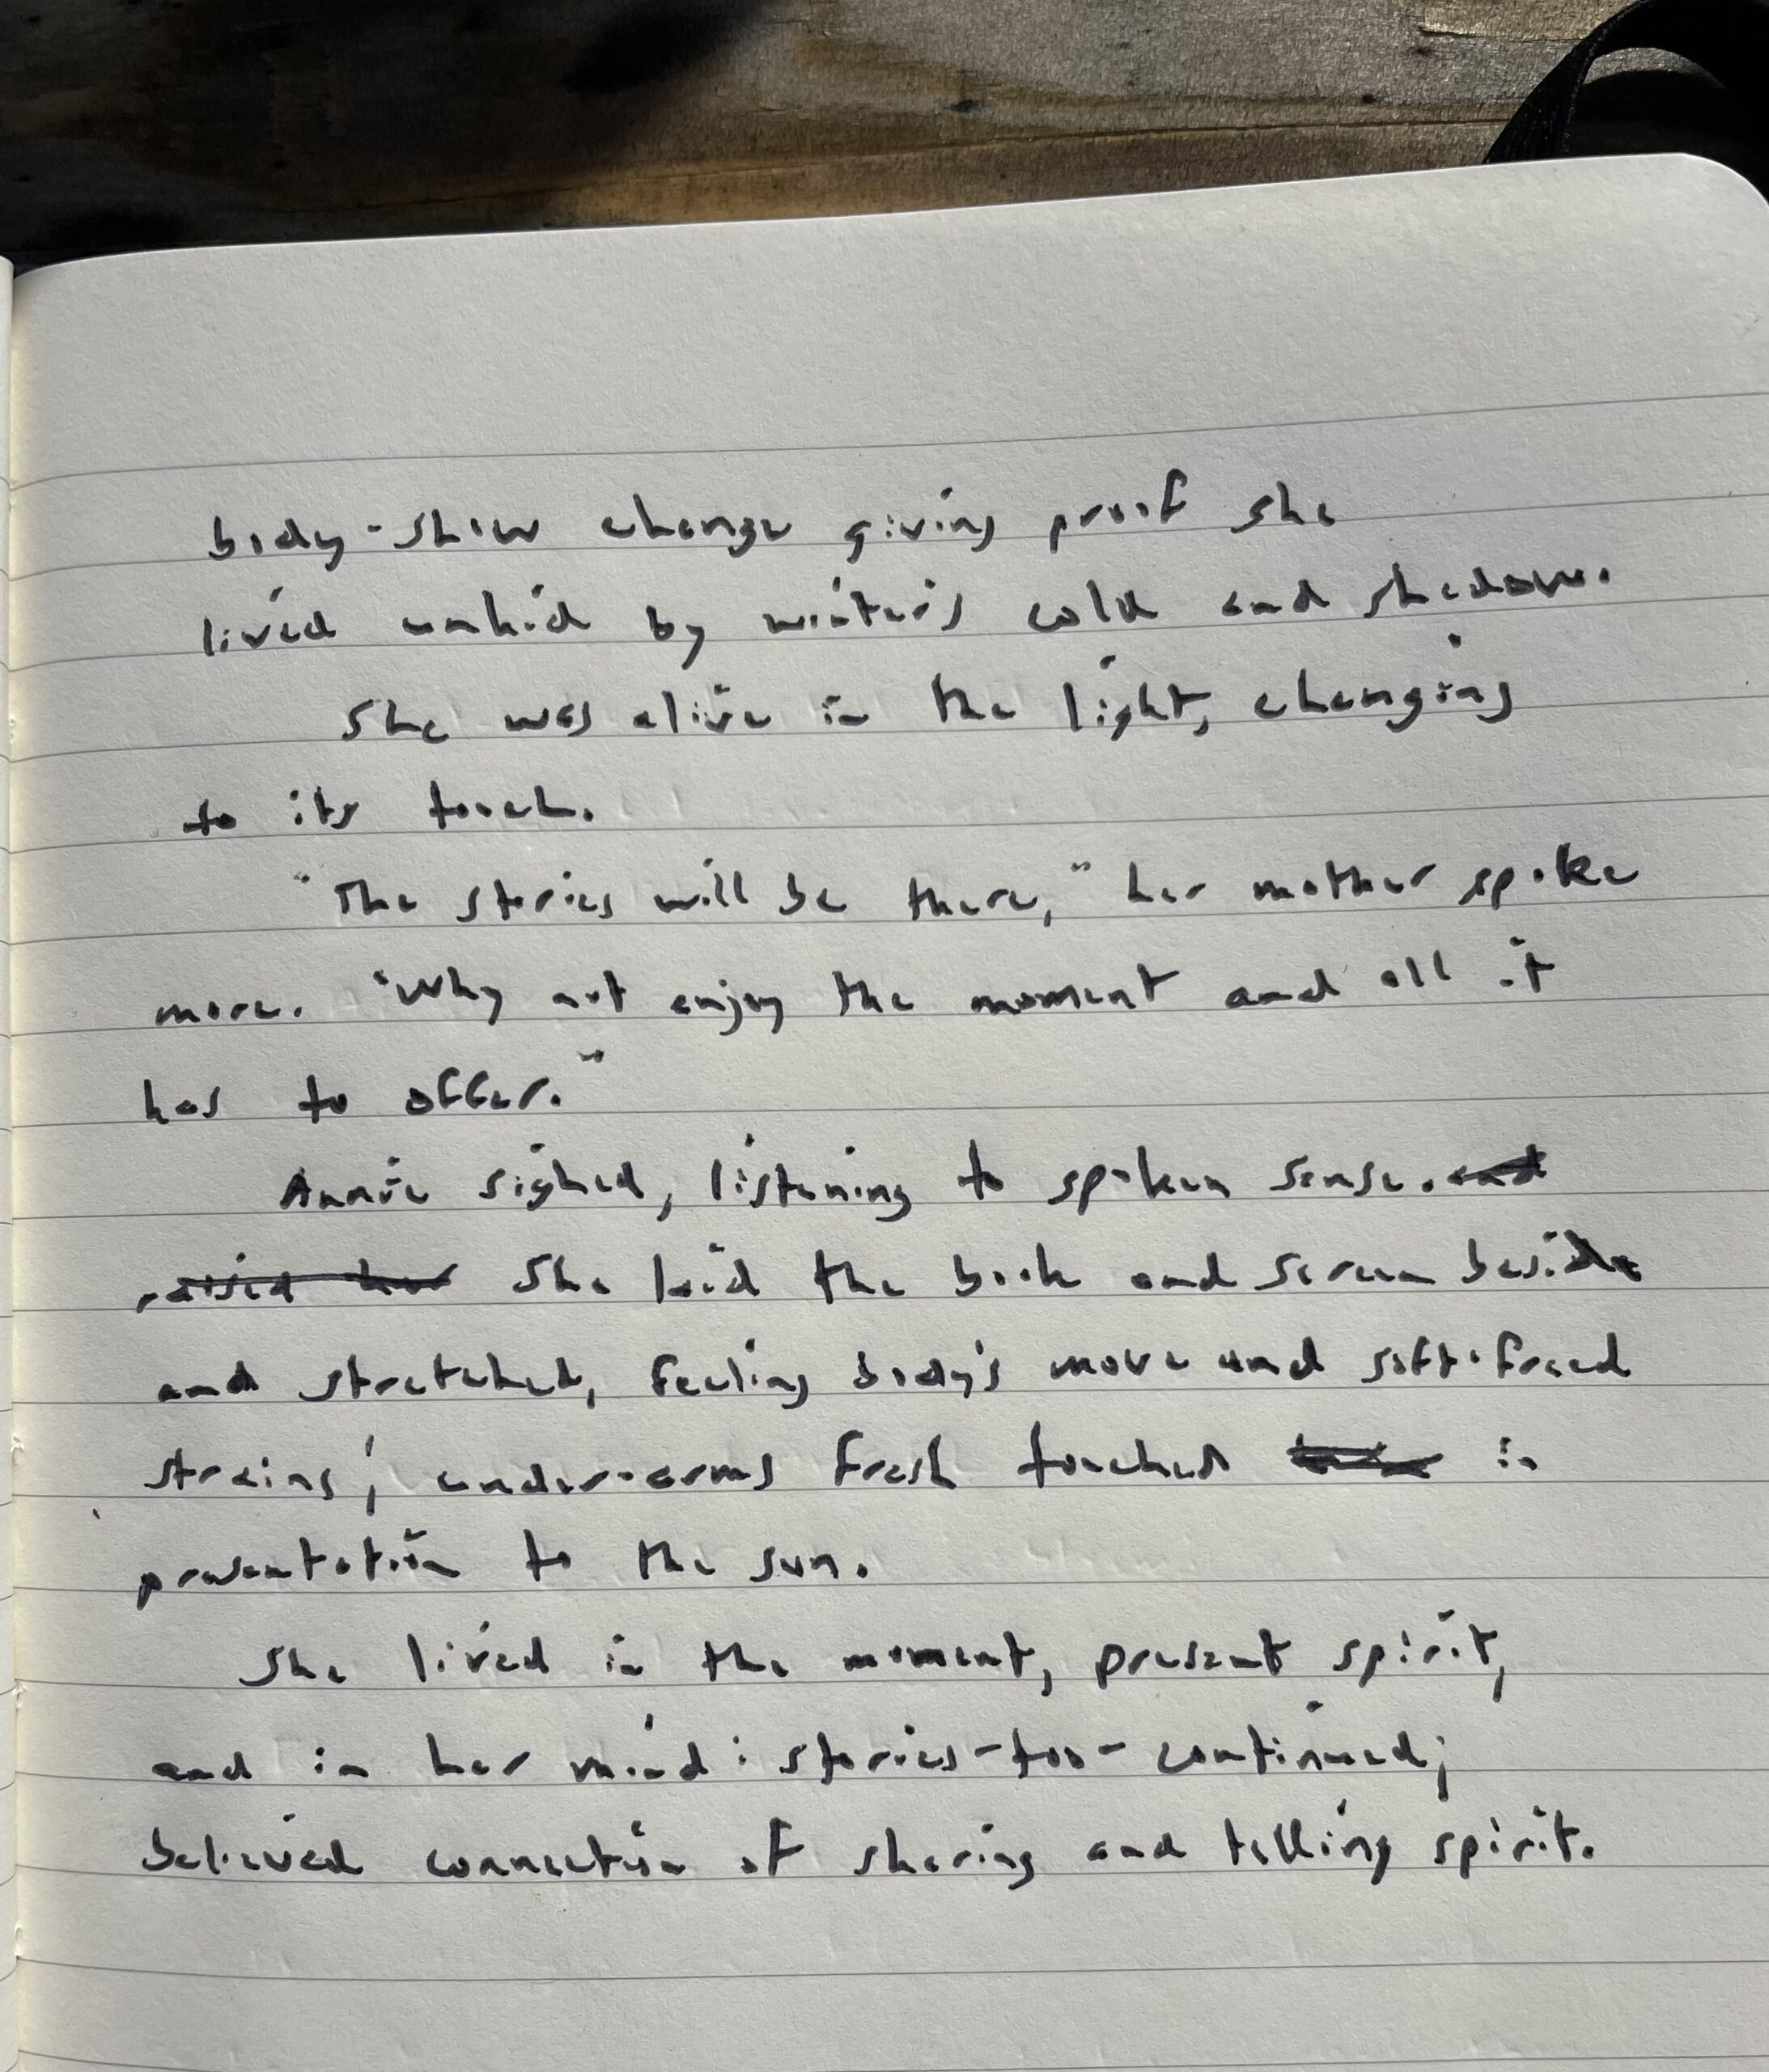 body-show change giving proof she
lived unhid by winter's cold and shadow.
She was alive in the light, changing
to its touch.
"The stories will be there," her mother spoke
more. "Why not enjoy the moment and all it
has to offer."
Annie sighed, listening to spoken sense. and
raised her She laid the book and screen beside
and stretched, feeling body's move and soft-freed
strains; under-arms fresh touched in
presentation to the sun.
She lived in the moment, present spirit,
and in her mind: stories-too-continued;
believed connection of sharing and telling spirit.